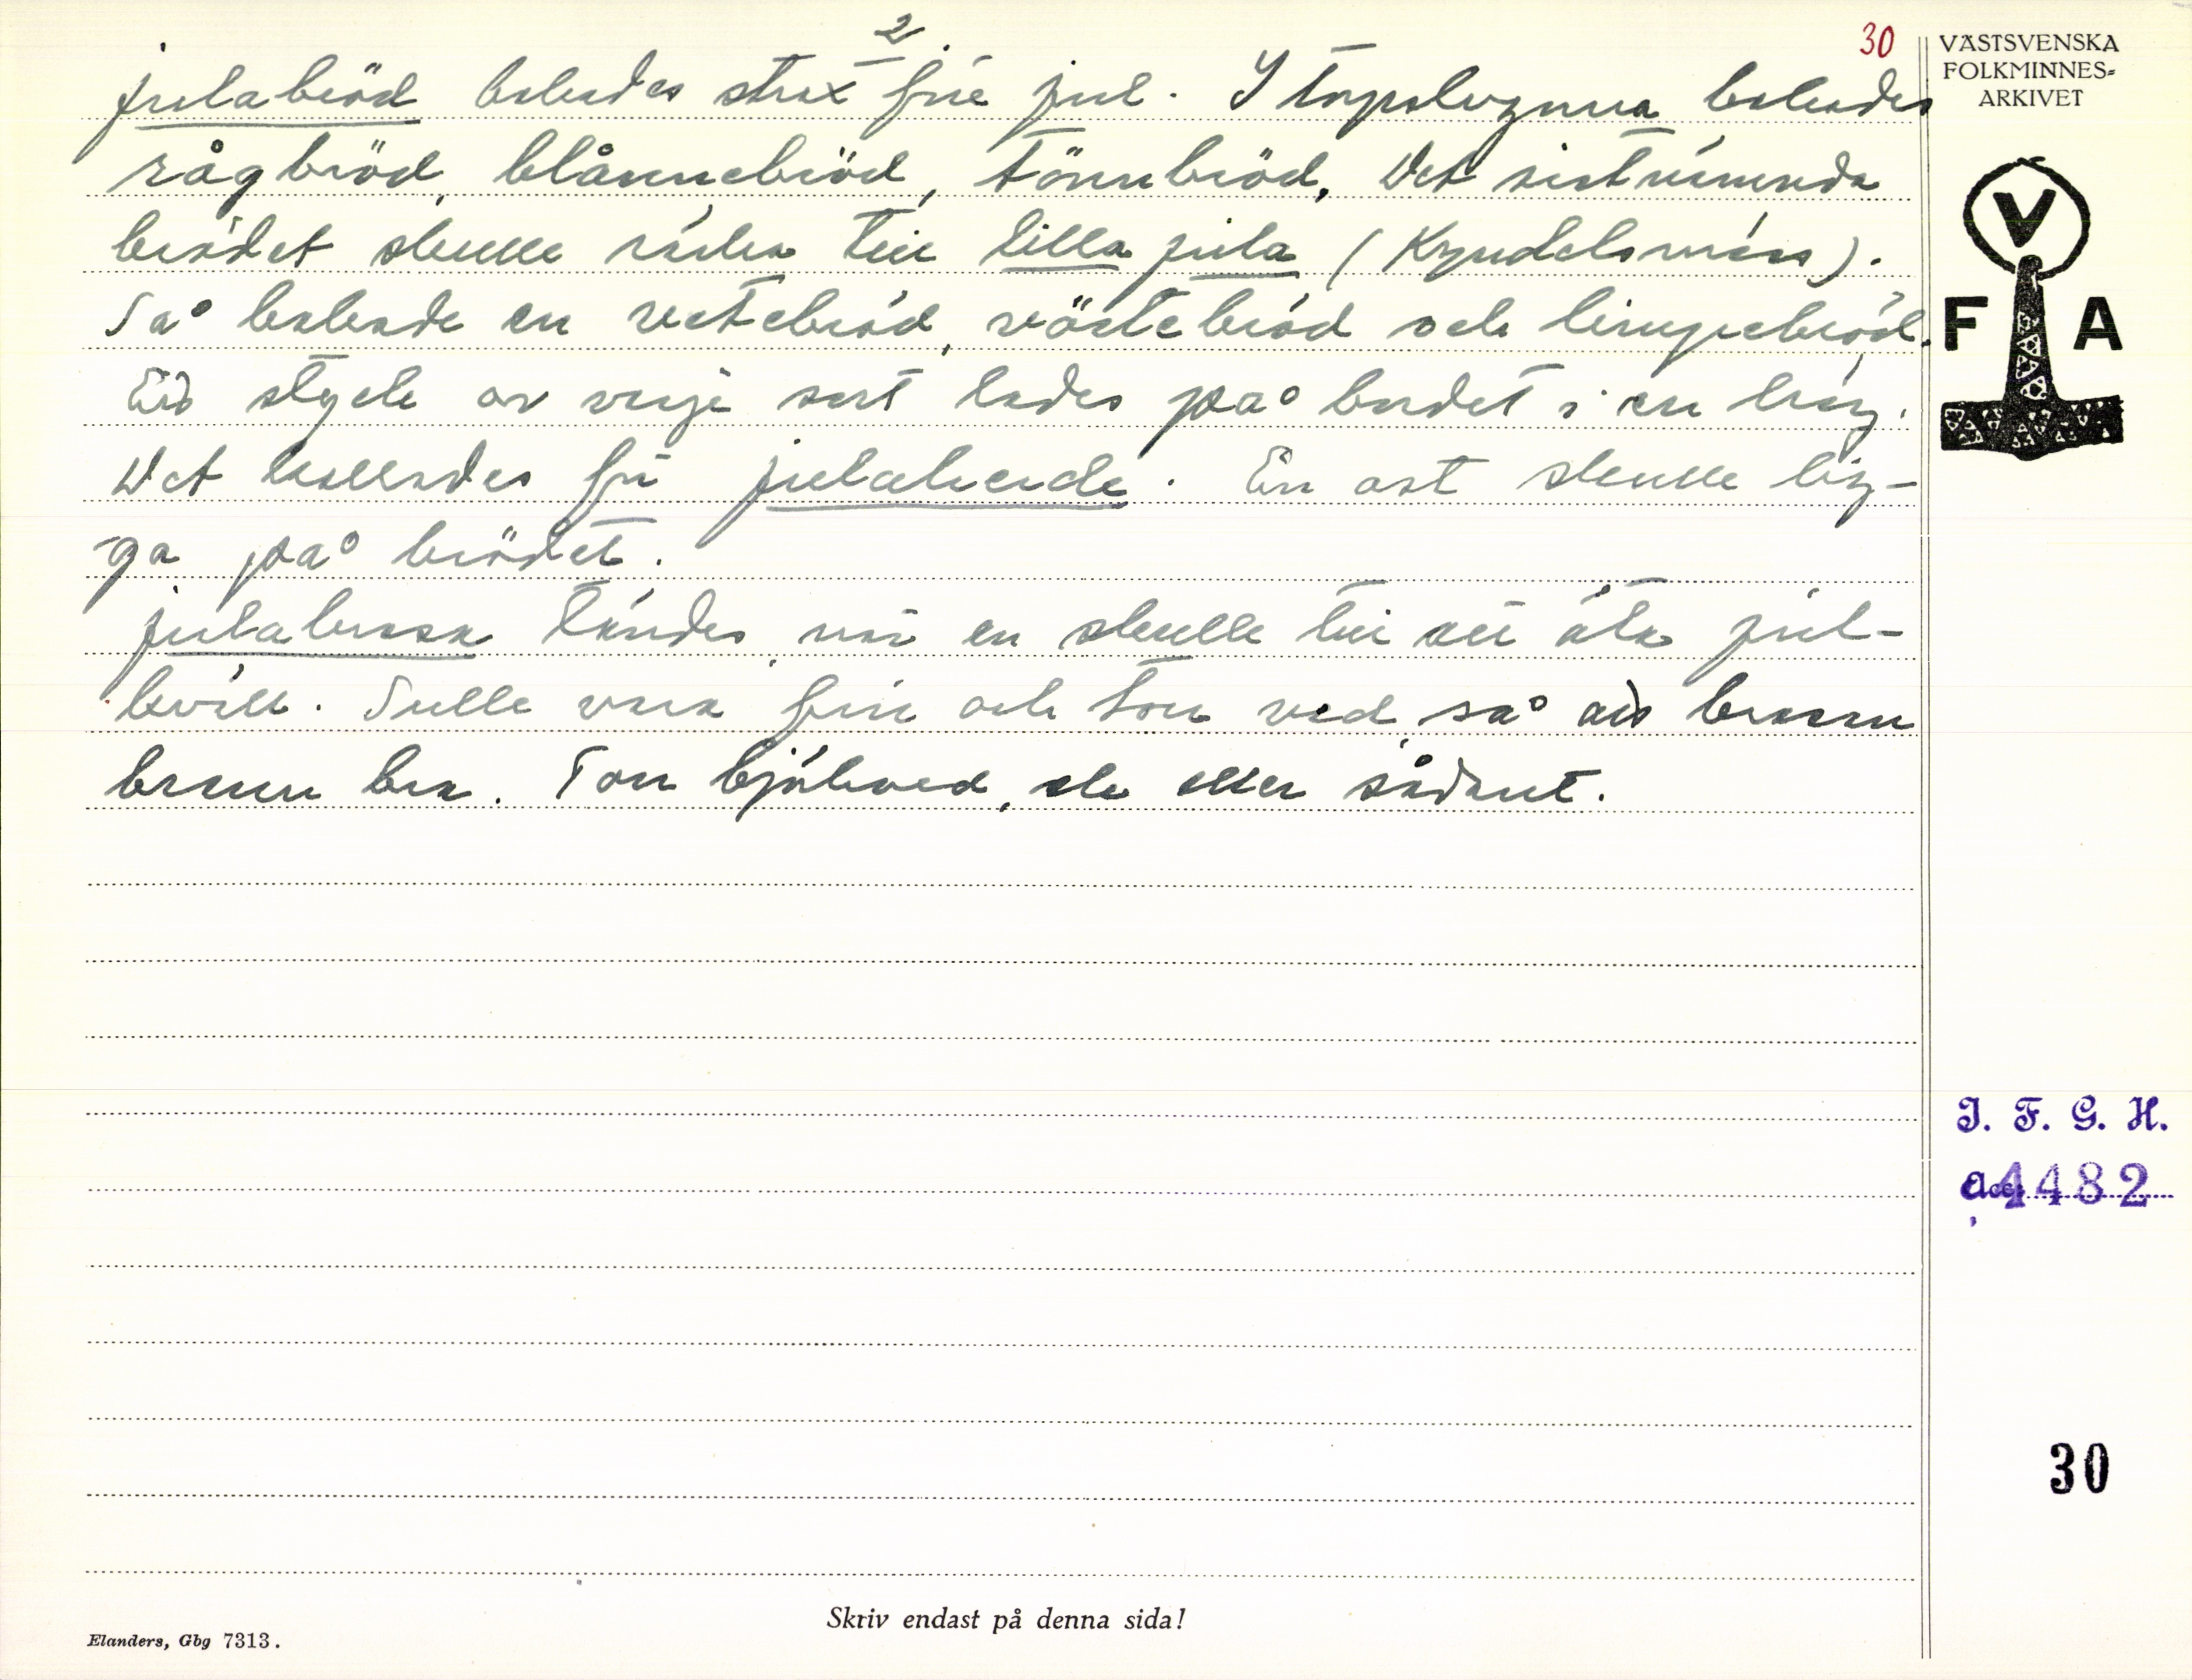 2
30
julabröd bakades strax före jul. I torpstugorna bakades
rågbröd, blånnebröd, tönnbröd. Det sistnämnda
brödet skulle räcka till lilla jula (Kyndelsmäss).
Så bakade en vetebröd, vörtebröd och limpebröd.
Ett stycke av varje sort lades på bordet i en hög.
Det kallades för julahende. En ost skulle lig-
ga på brödet.
julabrasa tändes, när en skulle till att äta jul-
kväll. Sulle vara fin och torr ved, så att brasan
brann bra. Torr björkved, ek eller sådant.
VÄSTSVENSKA
FOLKMINNES-
ARKIVET
V
F A
I. F. G. H.
Acc. 4482
30
Skriv endast på denna sida!
Elanders, Gbg 7313.